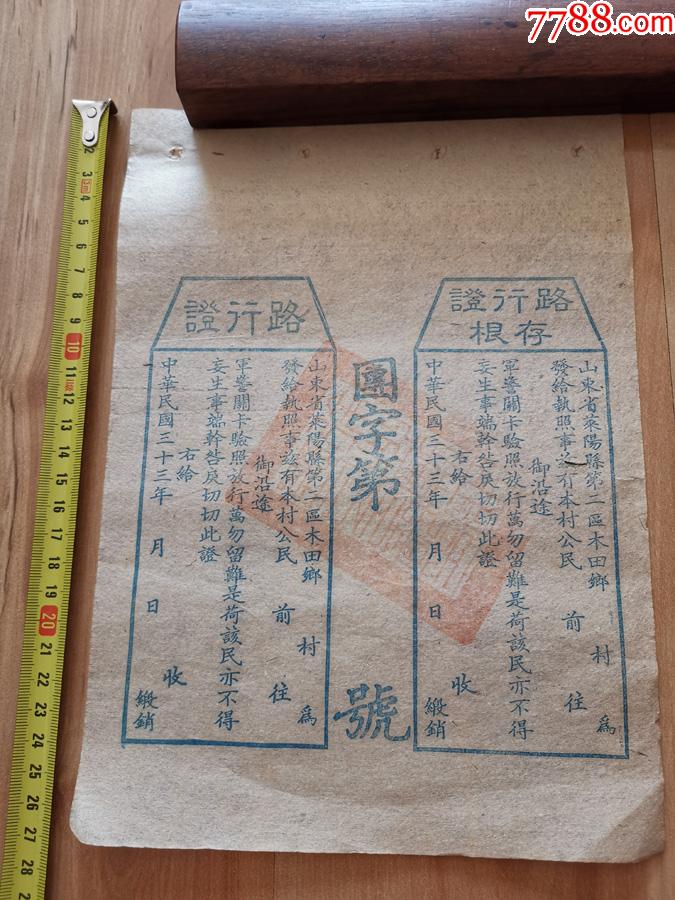 7788.com
路行證
存根
山東省萊陽縣第二區木田鄉 村 為
發給執照事茲有本村公民 前 往
御沿途
軍警關卡驗照放行萬勿留難是荷該民亦不得
妄生事端幹咎戾切切此證
右給 收
中華民國三十三年 月 日 繳銷
團字第 號
路行證
山東省萊陽縣第二區木田鄉 村 為
發給執照事茲有本村公民 前 往
御沿途
軍警關卡驗照放行萬勿留難是荷該民亦不得
妄生事端幹咎戾切切此證
右給 收
中華民國三十三年 月 日 繳銷
2
3
4
5
6
7
8
9
10
11
12
13
14
15
16
17
18
19
20
21
22
23
24
25
26
27
28